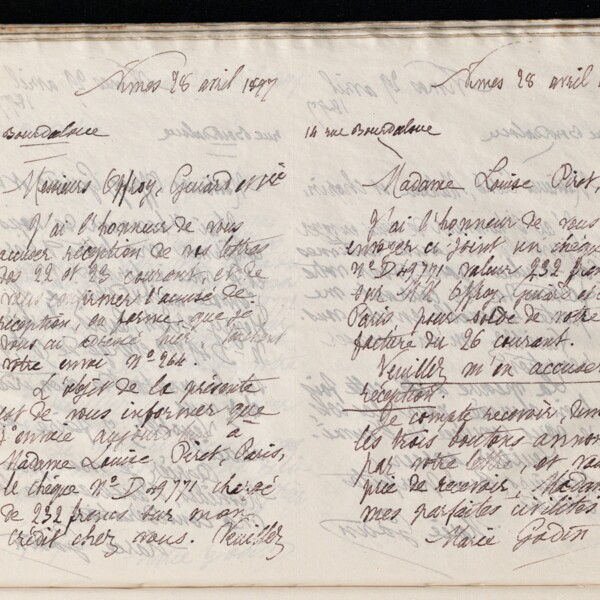 Nîmes 28 avril 1897
Bourdaloue
Messieurs Offroy, Guiard et Cie
J'ai l'honneur de vous
accuser réception de vos lettres
des 22 et 23 courant, et de
vous confirmer l'accusé de
réception, en forme, que je
vous ai adressé hier, touchant
votre envoi N° 264.
L'objet de la présente
est de vous informer que
j'envoie aujourd'hui à
Madame Louise Piret, Paris,
le chèque N° D 49,771 chargé
de 232 francs sur mon
crédit chez vous. Veuillez
Nîmes 28 avril
14 rue Bourdaloue
Madame Louise Piret,
J'ai l'honneur de vous
envoyer ci joint un chèque
N° D 49,771 valeur 232 fran
sur MM Offroy, Guiard et C
Paris pour solde de votre
facture du 26 courant.
Veuillez m'en accuser
réception.
Je compte recevoir,
les trois boutons annon
par votre lettre, et vou
prie de recevoir, Madam
mes parfaites civilités
Marie Godin